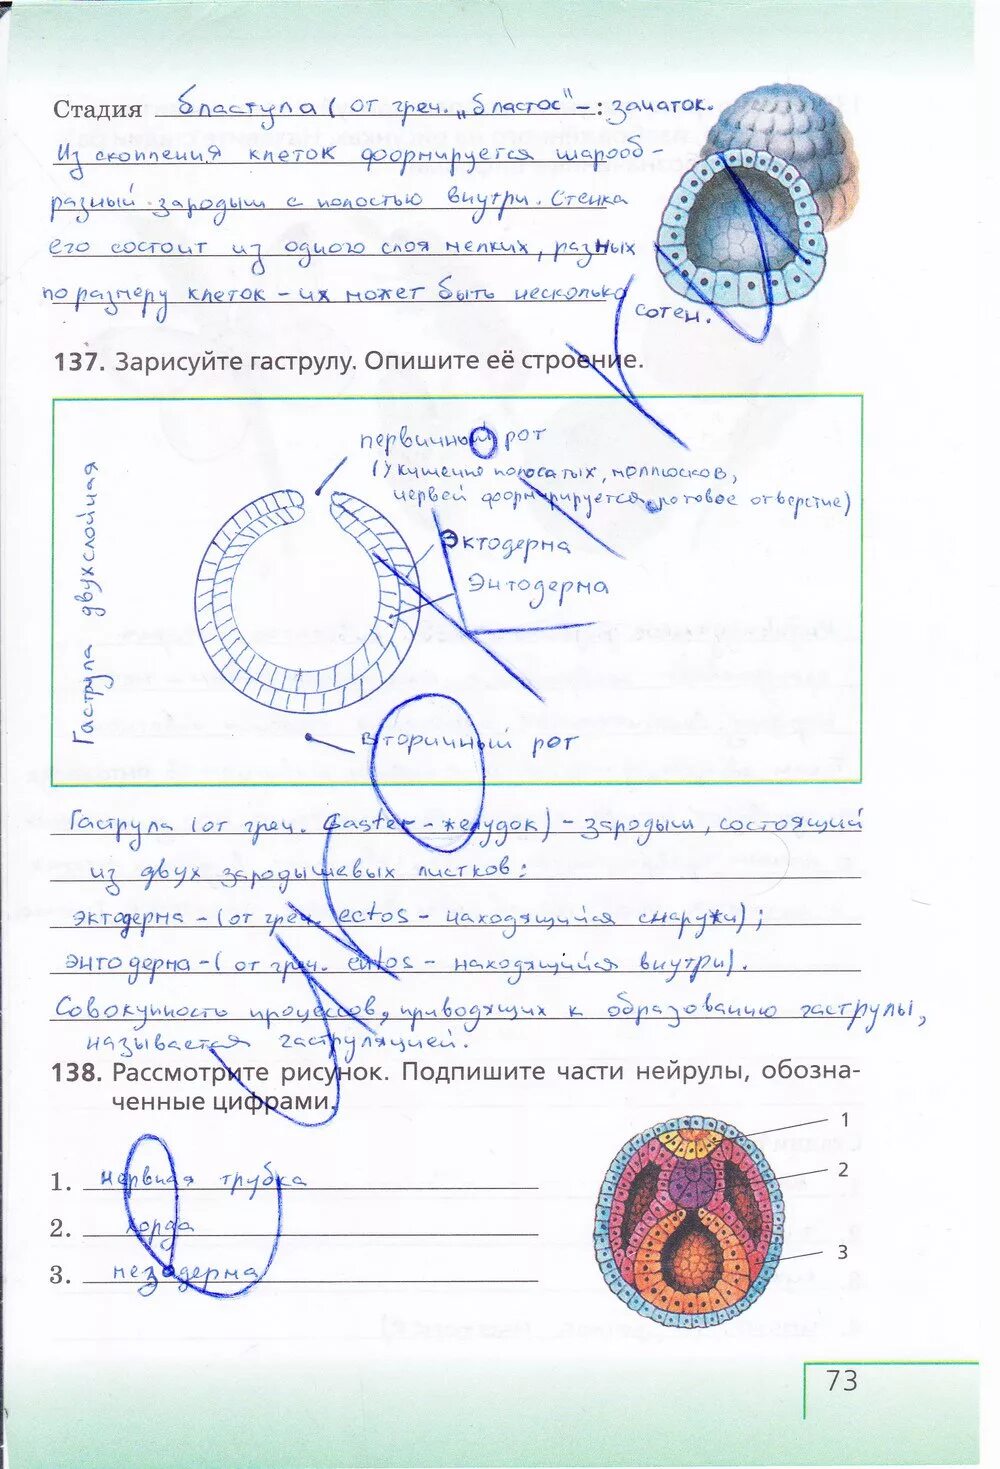 Стадия бластула (от греч. „бластос"–: зачаток.
Из скопления клеток формируется шарооб-
разный зародыш с полостью внутри. Стенка
его состоит из одного слоя мелких, разных
по размеру клеток – их может быть несколько
сотен.
137. Зарисуйте гаструлу. Опишите её строение.
первичный рот
(У кишечнополосатых, моллюсков,
червей формируется ротовое отверстие)
Эктодерма
Энтодерма
Гаструла двухслойная
Вторичный рот
Гаструла (от греч. gaster – желудок) – зародыш, состоящий
из двух зародышевых листков:
эктодерма – (от греч. ectos – находящийся снаружи);
энтодерма – (от греч. entos – находящийся внутри).
Совокупность процессов, приводящих к образованию гаструлы,
называется гаструляцией.
138. Рассмотрите рисунок. Подпишите части нейрулы, обозна-
ченные цифрами.
1. нервная трубка
2. хорда
3. мезодерма
1
2
3
73